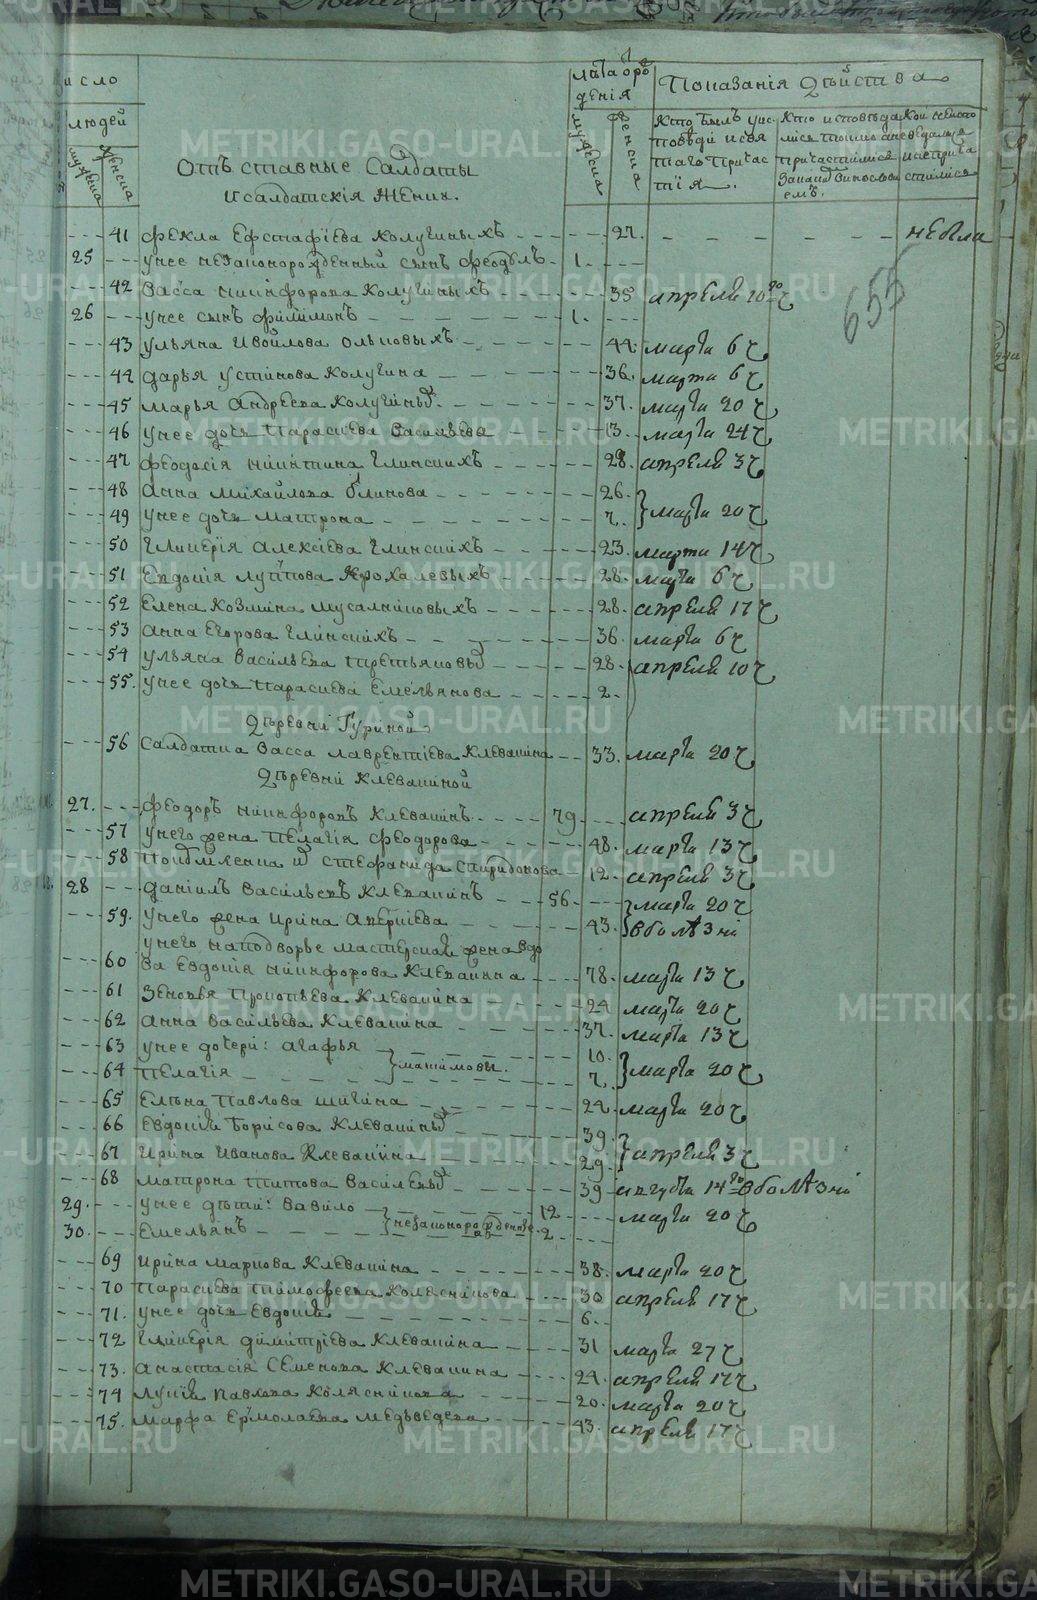 число
людей
мужеска
женска
Отъставные Салдаты
и салдатскія Жены.
лѣта отъ рож
денія
мужеска
женска
Показанія дѣйства
Кто былъ у ис
повѣди и свя
таго Прича
тія.
Кто исповѣда
лися токмо а не
причастился и
Закакимъ винословi
емъ.
Кои
не
исповѣдался
и не прича
стился
41 Фекла Ефстафіева Колугиныхъ 27. не была
25 У нее незаконорожденный сынъ Феодулъ 1.
42 Васса Никифорова Колугиныхъ 35 апреля 10го ч
26 У нее сынъ Филимонъ 1.
655
43 Ульяна Ивойлова Ольковыхъ 44. марта 6 ч
44 Дарья Устинова Колугина 36. марта 6 ч
45 Марья Андреева Колугиныхъ 37. марта 20 ч
46 У нее дочь Парасковa Васильева 13. марта 24 ч
47 Феодосія Никитина Глинскихъ 28. апреля 3 ч
48 Анна Михайлова Блинова 26.
49 У нее дочь Матрона 7. марта 20 ч
50 Гликерія Алексіева Глинскихъ 23. марта 14 ч
51 Евдокія Луппова Крохалевыхъ 28. марта 6 ч
52 Елена Козмина Мусальниковыхъ 28. апреля 17 ч
53 Анна Егорова Глинскихъ 36. марта 6 ч
54 Ульяна Васильева Третьяковыхъ 28. апреля 10 ч
55. У нее дочь Парасковa Емельянова 2.
Дѣревни Гуриной
56 Салдатка Васса Лаврентіева Клевакина 33. марта 20 ч
Дѣревни Клевакиной
27. Феодоръ Никифоровъ Клевакинъ 79. апреля 3 ч
57 У него жена Пелагія Феодорова 48. марта 13 ч
58 Стефанида Спиридонова 12. апреля 3 ч
28 Даніилъ Васильевъ Клевакинъ 56. марта 20 ч
59. У него жена Ирина Аверкіева 43. в болѣзни
У него на подворье мастерская жена вдо
60 ва Евдокія Никифорова Клевакина 78. марта 13 ч
61 Зеновья Прокопьева Клевакина 24 марта 20 ч
62 Анна Васильева Клевакина 37. марта 13 ч
63 У нее дочери: Агафья 10.
64 Пелагія Макимовы. 7. марта 20 ч
65 Елена Павлова Шигина 24. марта 20 ч
66 Евдокія Борисова Клевакиныхъ 39.
67 Ирина Иванова Клевакина 29. апреля 3 ч
68 Матрона Титова Васильевыхъ 39 августа 14го в болѣзни
29. У нее дѣти: Вавило 12 марта 20 ч
30. Емельянъ незаконорожденные 2.
69 Ирина Маркова Клевакина 38. марта 20 ч
70 Парасковa Тимофеева Колясникова 30 апреля 17 ч
71. У нее дочь Евдокія 6.
72 Гликерія Димитріева Клевакина 31 марта 27 ч
73. Анастасія Семенова Клевакина 24. апреля 17 ч
74 Лукія Павлова Колясникова 20. марта 20 ч
75. Марфа Ермолаева Медьведева 43. апреля 17 ч
METRIKI.GASO-URAL.RU